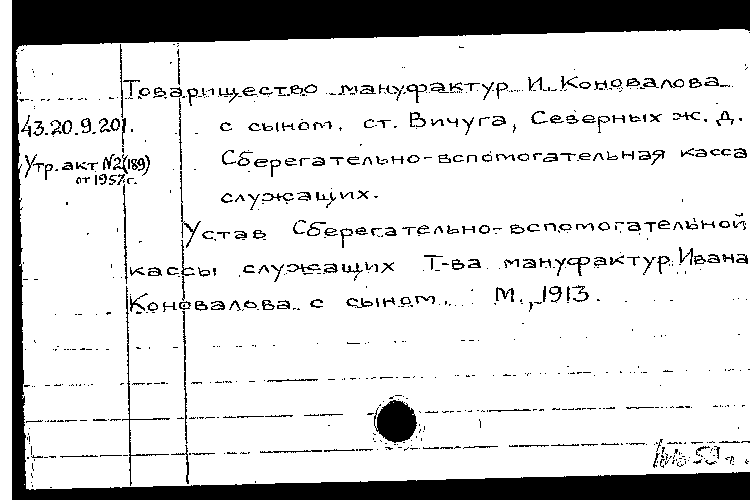 Товарищество мануфактур И. Коновалова
43.20.9.201.
с сыном, ст. Вичуга, Северных ж. д.
Утр. акт №2(189)
от 1957г.
Сберегательно-вспомогательная касса
служащих.
Устав Сберегательно-вспомогательной
кассы служащих Т-ва мануфактур Ивана
Коновалова с сыном. М., 1913.